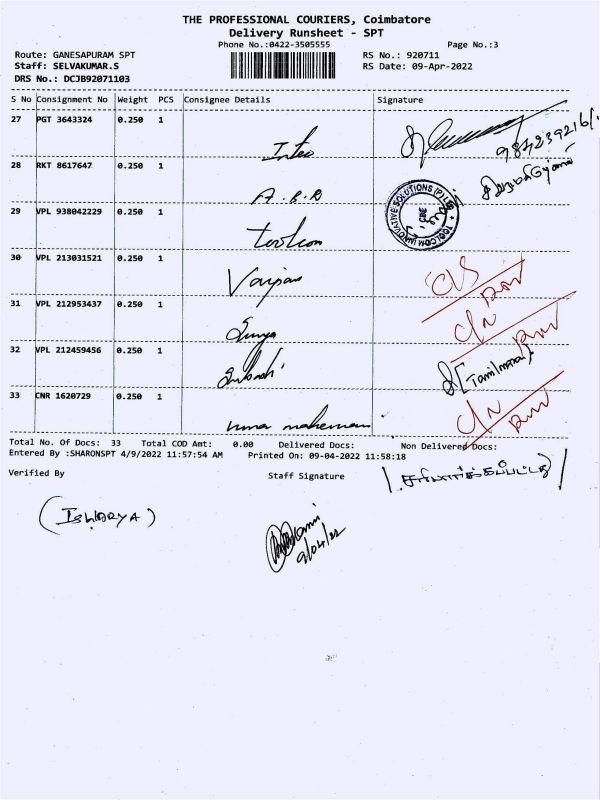 THE PROFESSIONAL COURIERS, Coimbatore
Delivery Runsheet - SPT
Phone No.:0422-3505555 Page No.:3
Route: GANESAPURAM SPT RS No.: 920711
Staff: SELVAKUMAR.S RS Date: 09-Apr-2022
DRS No.: DCJB92071103
S No Consignment No Weight PCS Consignee Details Signature
27 PGT 3643324 0.250 1
Intec
28 RKT 8617647 0.250 1
A.B.R
29 VPL 938042229 0.250 1
toolcom
TOOLCOM INNOVATIVE SOLUTIONS (P) LTD
CBE
30 VPL 213031521 0.250 1
31 VPL 212953437 0.250 1
Surya
32 VPL 212459456 0.250 1
33 CNR 1620729 0.250 1
uma maheswari
Total No. Of Docs: 33 Total COD Amt: 0.00 Delivered Docs: Non Delivered Docs:
Entered By :SHARONSPT 4/9/2022 11:57:54 AM Printed On: 09-04-2022 11:58:18
Verified By Staff Signature
சரிபார்க்கப்பட்டது
(ISWARYA)
9/04/22